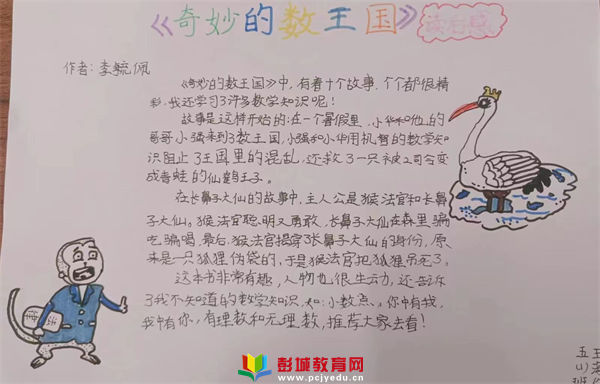 《奇妙的数王国》读后感
作者:李毓佩
《奇妙的数王国》中,有着十个故事,个个都很精
彩,我还学习了许多数学知识呢!
故事是这样开始的:在一个暑假里,小华和他的
哥哥小强来到了数王国,小强和小华用机智的数学知
识阻止了王国里的混乱,还救了一只被2司令变
成青蛙的仙鹤王子。
在长鼻子大仙的故事中,主人公是猴法官和长鼻
子大仙。猴法官聪明又勇敢,长鼻子大仙在森里骗
吃骗喝,最后,猴法官揭穿了长鼻子大仙的身份,原
来是一只狐狸伪装的,于是猴法官把狐狸吊死了。
这本书非常有趣,人物也很生动,还告诉
了我不知道的数学知识,如:小数点、你中有我,
我中有你,有理数和无理数,推荐大家去看!
法
律
五
班
彭城教育网
www.pcjyedu.cn